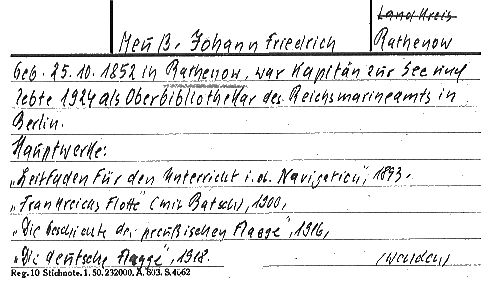 Land Kreis
Meuß, Johann Friedrich Rathenow
Geb. 25.10.1852 in Rathenow, war Kapitän zur See und
lebte 1924 als Oberbibliothekar des Reichsmarineamts in
Berlin.
Hauptwerke:
„Leitfaden für den Unterricht i. d. Navigation", 1893.
„Frankreichs Flotte" (mit Batsch), 1900,
„Die Geschichte der preußischen Flagge", 1916,
„Die deutsche Flagge", 1918. (wenden)
Reg. 10 Stichnote. 1. 50. 232000. A. 803. S. 4662